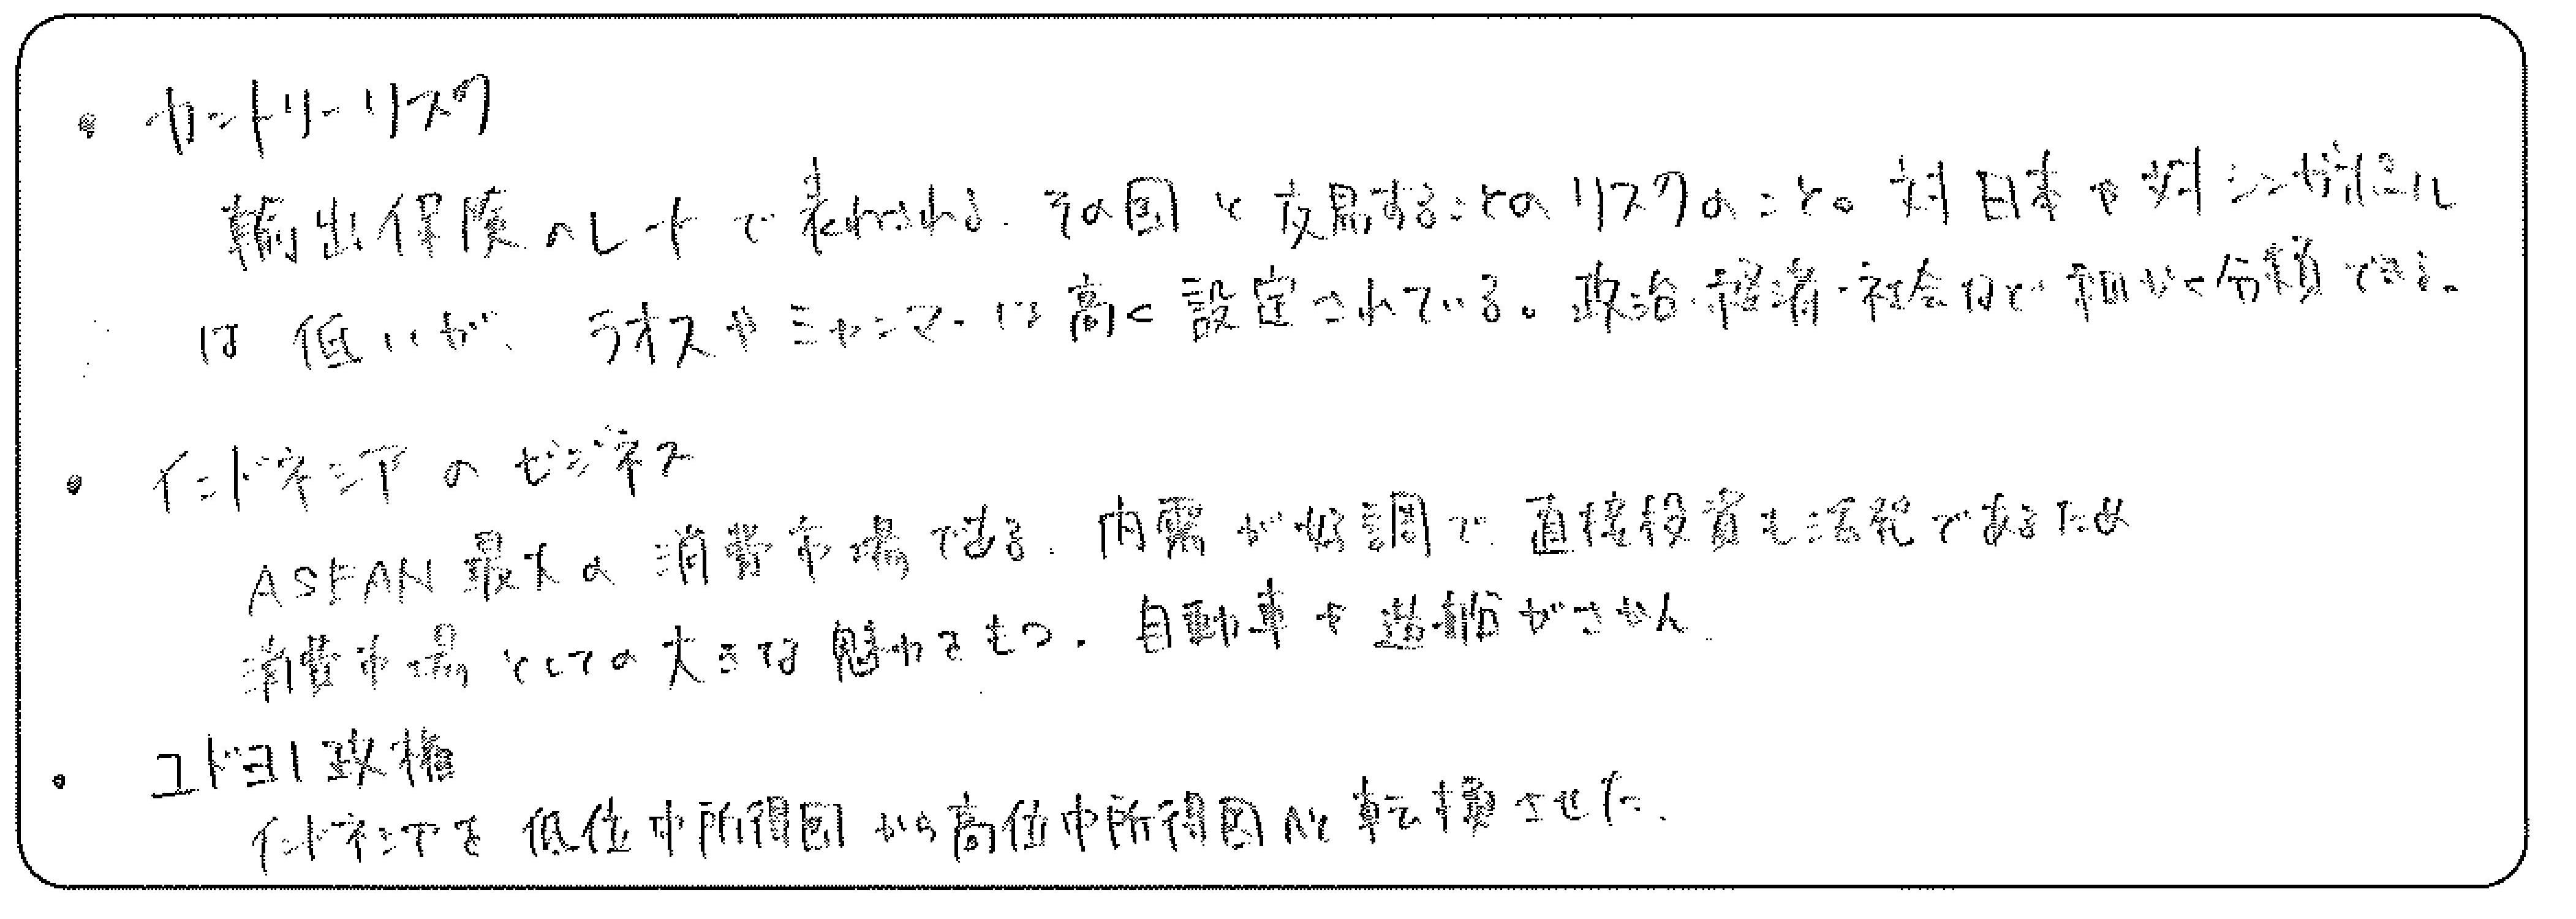 ・カントリーリスク
輸出保険のレートで表わされる、その国と交易することのリスクのこと。対日本や対シンガポール
は低いが、ラオスやミャンマーは高く設定されている。政治・経済・社会など細かく分類できる。
・インドネシアのビジネス
ASEAN最大の消費市場である。内需が好調で、直接投資も活発であるため
消費市場としての大きな魅力をもつ。自動車や造船がさかん。
・ユドヨノ政権
インドネシアを低位中所得国から高位中所得国へと転換させた。